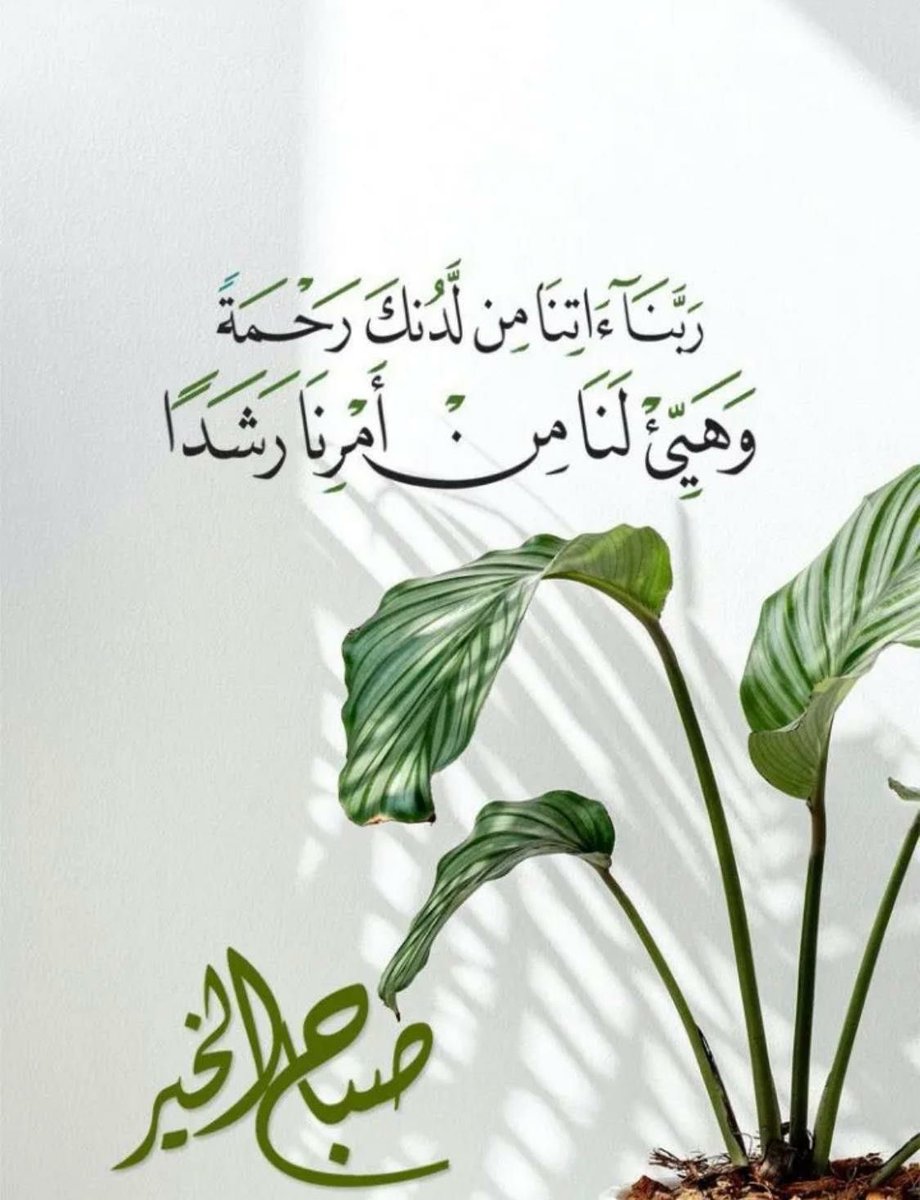 رَبَّنَآ ءَاتِنَا مِن لَّدُنكَ رَحْمَةً
وَهَيِّئْ لَنَا مِنْ أَمْرِنَا رَشَدًا
صباح الخير